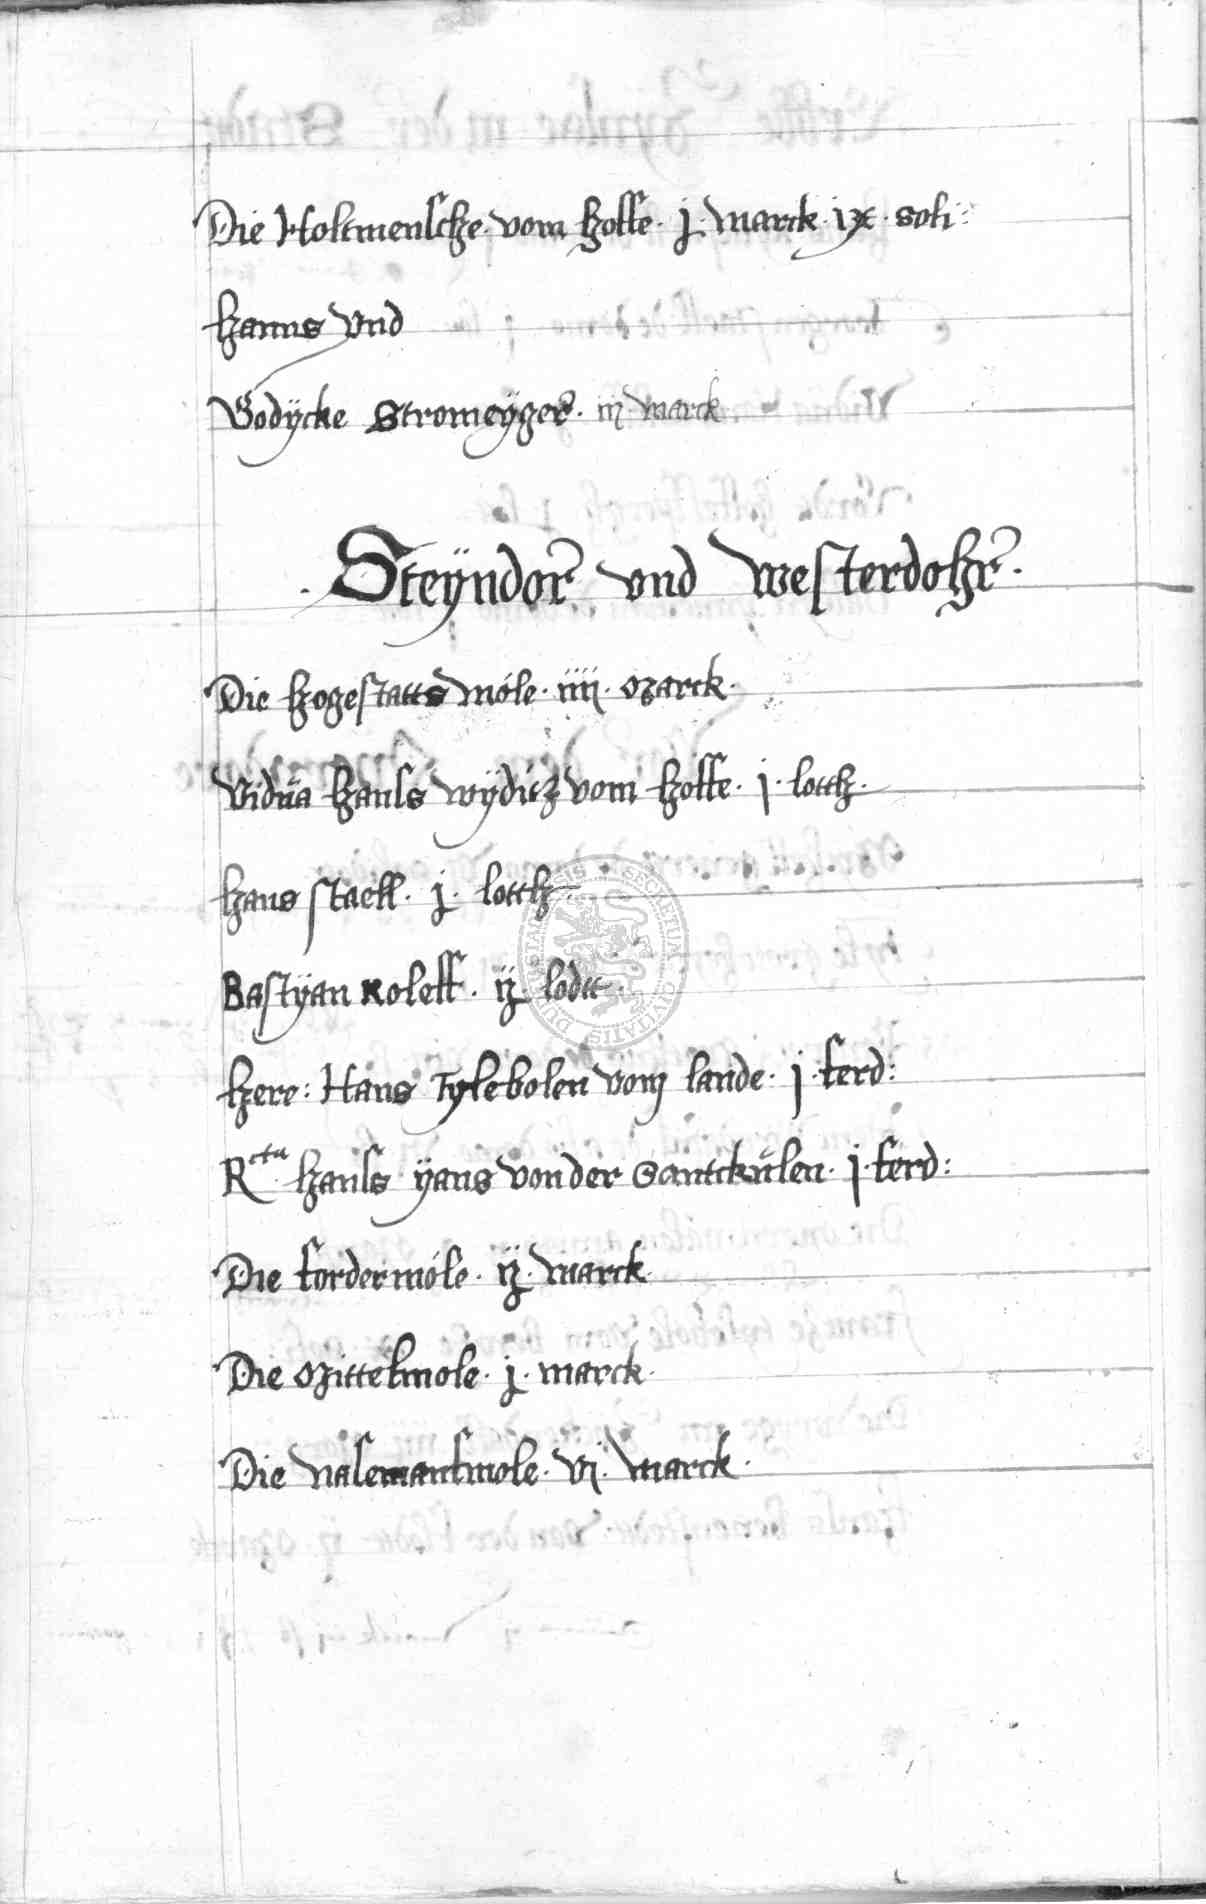 Die Holtmensche · vom hoffe · j · marck · ix · soli:
hanns vnd
Godÿcke Stromeÿger · iij marck
· Steÿndor vnd westerdohr ·
Die hogestatts mole · iiij · marck ·
Vidua hanss wÿdutz vom hoffe · j · lotth ·
hans staell · j · lotth ·
Bastÿan Roleff · ij · lodtt ·
here: Hans Tylebolen vom lande · j · ferd:
Rcta hanss ÿans von der Santckulen · j · ferd:
Die fordermole · ij · marck
Die Mittelmole · j · marck ·
Die Nalemansmole · vj · marck ·
SECRETUM CIVITATIS